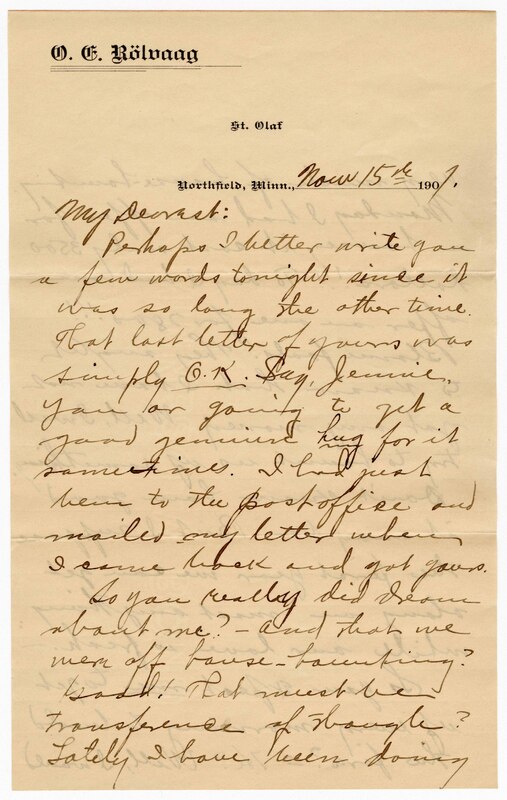 O. E. Rölvaag
St. Olaf
Northfield, Minn., Nov 15th 1907.
My Dearest:
Perhaps I better write you
a few words tonight since it
was so long the other time.
That last letter of yours was
simply O.K. Say, Jennie,
you ar going to get a
good jenuine hug for it
sometimes. I had just
been to the postoffice and
mailed my letter when
I came back and got yours.
So you really did dream
about me? - and that we
were off house-haunting?
Good! That must be
transference of thought?
Lately I have been doing